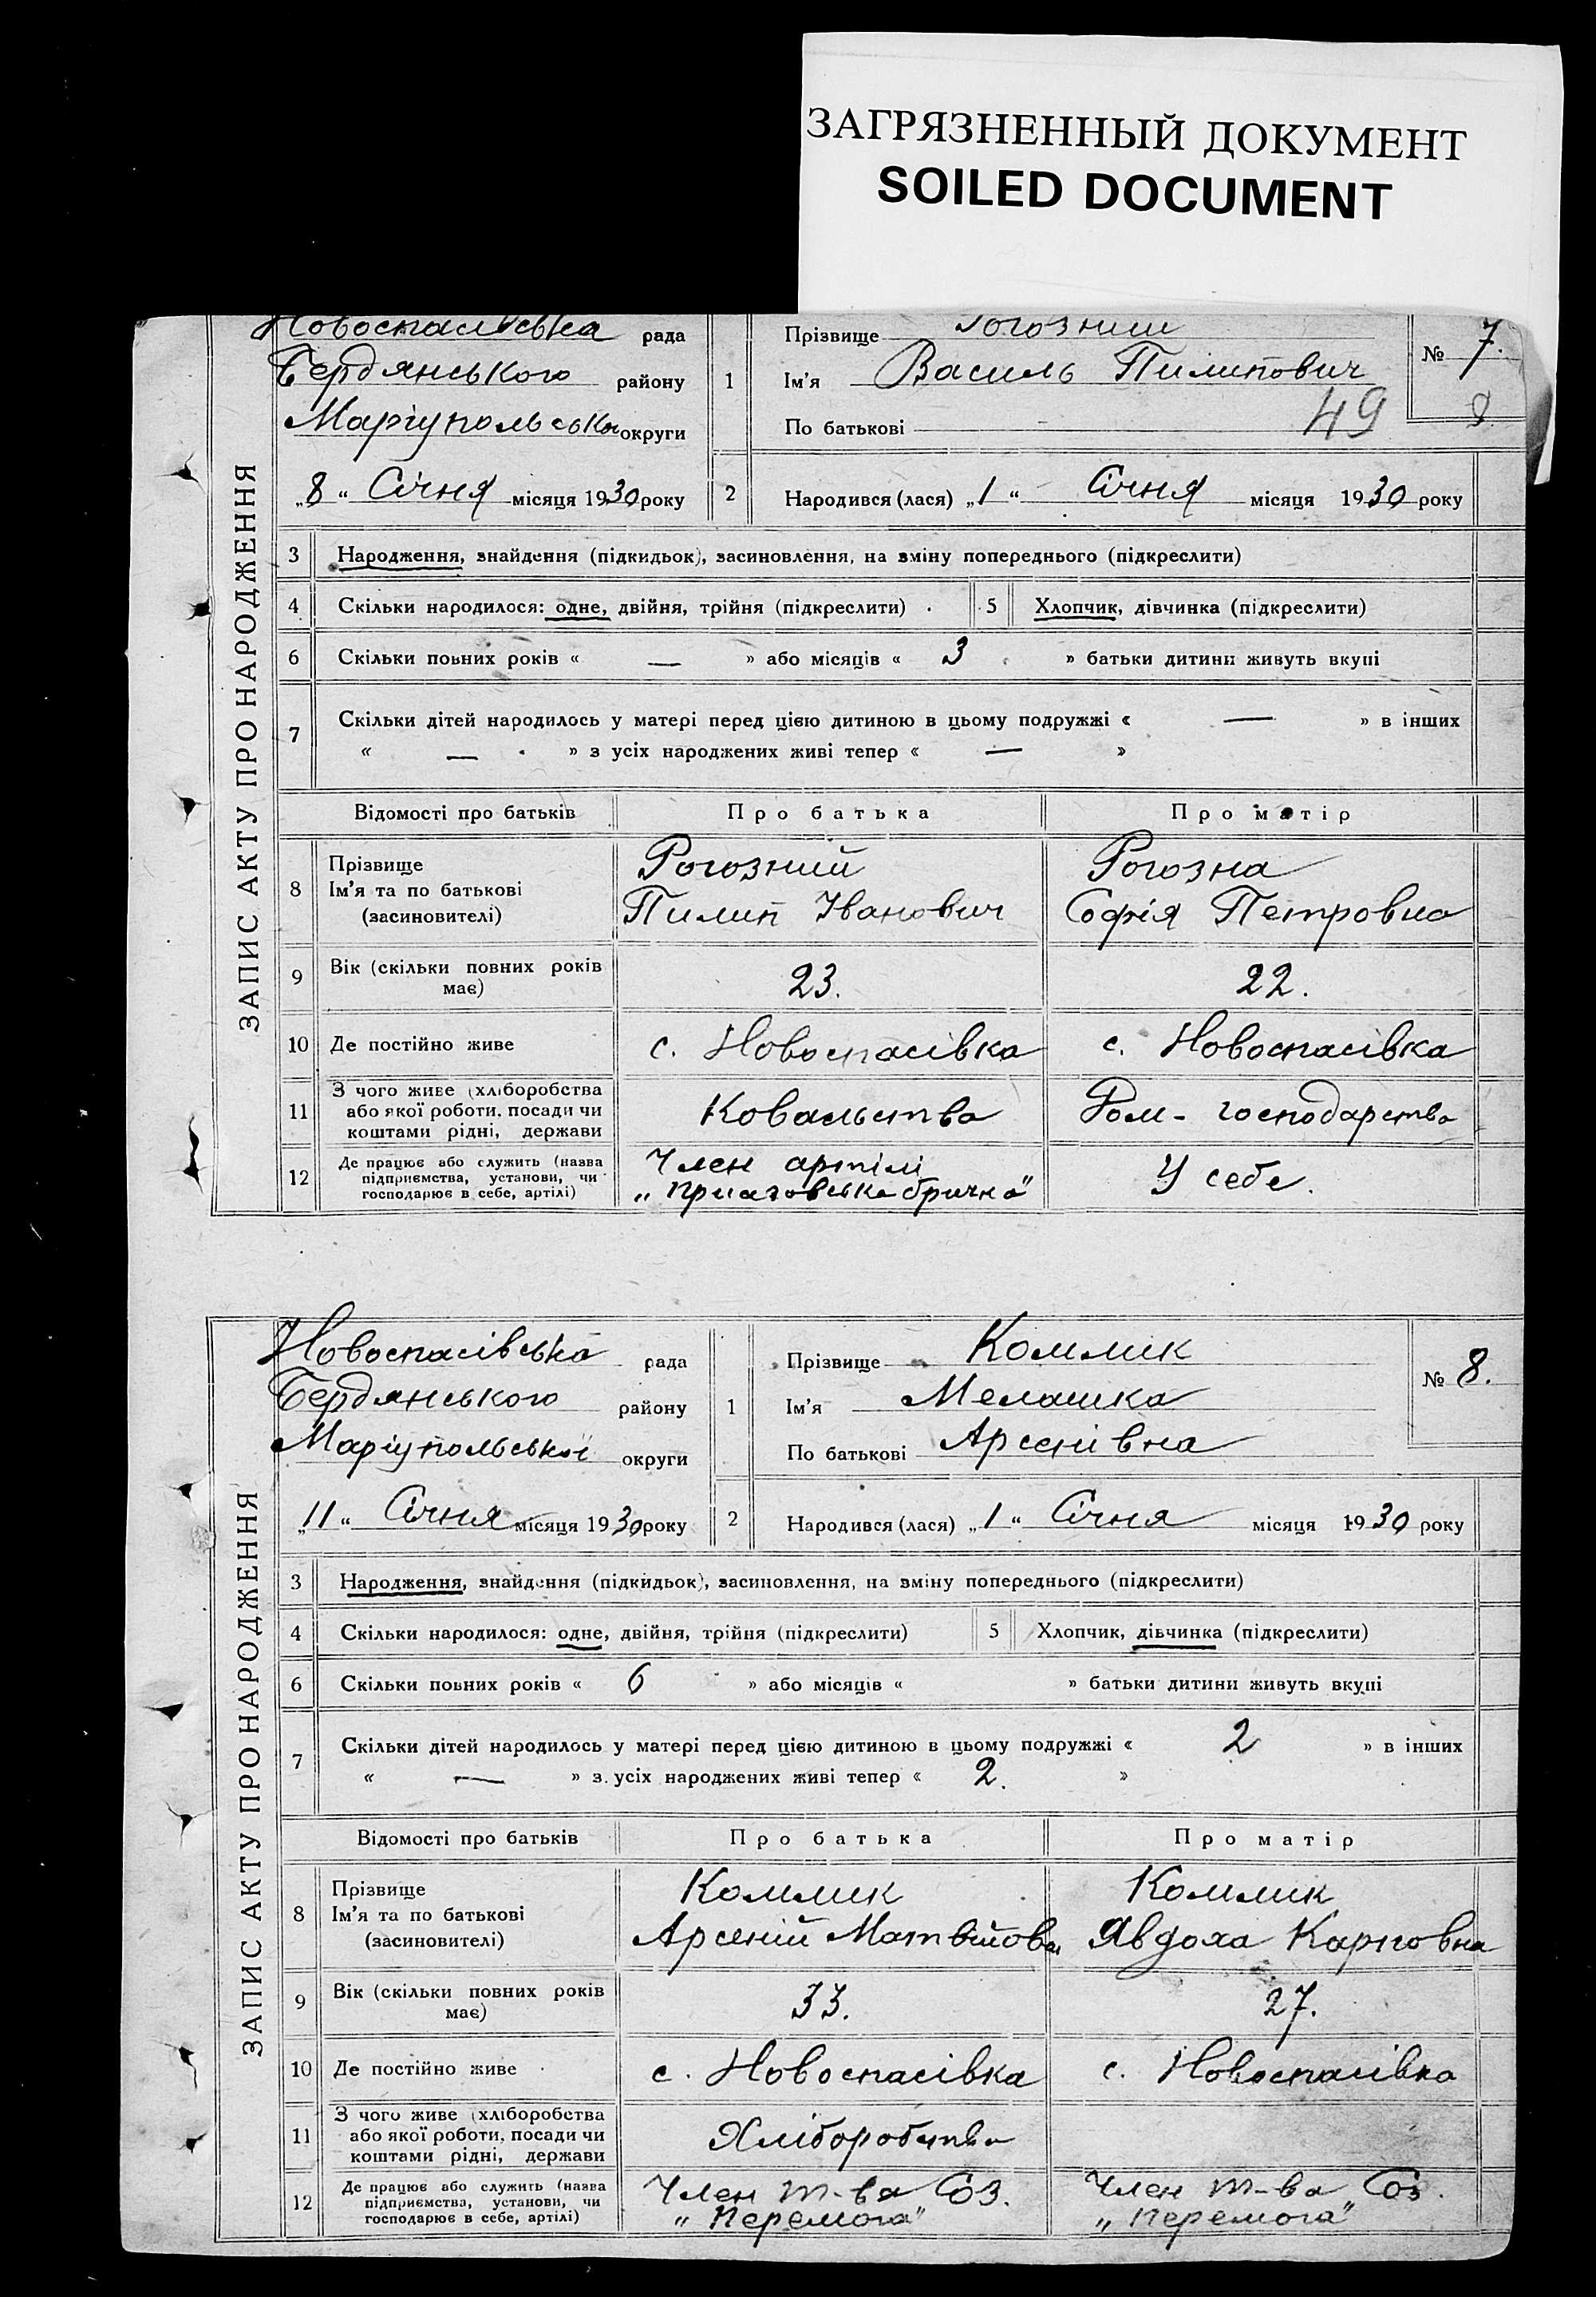 ЗАГРЯЗНЕННЫЙ ДОКУМЕНТ
SOILED DOCUMENT
ЗАПИС АКТУ ПРО НАРОДЖЕННЯ
Новоспасівська рада
Бердянського району
Маріупольської округи
„8“ Січня місяця 1930 року
1 Прізвище Рогозний
Ім'я Василь Пилипович
По батькові 49
№ 7.
2 Народився (лася) „1“ Січня місяця 1930 року
3 Народження, знайдення (підкидьок), засиновлення, на зміну попереднього (підкреслити)
4 Скільки народилося: одне, двійня, трійня (підкреслити) 5 Хлопчик, дівчинка (підкреслити)
6 Скільки повних років « — » або місяців « 3 » батьки дитини живуть вкупі
7 Скільки дітей народилось у матері перед цією дитиною в цьому подружжі « — » в інших
« — » з усіх народжених живі тепер « — »
Відомості про батьків Про батька Про матір
8 Прізвище Рогозний Рогозна
Ім'я та по батькові Пилип Іванович Софія Петровна
(засиновителі)
9 Вік (скільки повних років має) 23. 22.
10 Де постійно живе с. Новоспасівка с. Новоспасівка
11 З чого живе (хліборобства
або якої роботи, посади чи Ковальства Дом- господарства
коштами рідні, держави
12 Де працює або служить (назва Член артілі
підприємства, установи, чи У себе.
господарює в себе, артілі) „Приазовська бричка“
ЗАПИС АКТУ ПРО НАРОДЖЕННЯ
Новоспасівська рада
Бердянського району
Маріупольської округи
„11“ Січня місяця 1930 року
1 Прізвище Коммик
Ім'я Мелашка
По батькові Арсенівна
№ 8.
2 Народився (лася) „1“ Січня місяця 1930 року
3 Народження, знайдення (підкидьок), засиновлення, на зміну попереднього (підкреслити)
4 Скільки народилося: одне, двійня, трійня (підкреслити) 5 Хлопчик, дівчинка (підкреслити)
6 Скільки повних років « 6 » або місяців « » батьки дитини живуть вкупі
7 Скільки дітей народилось у матері перед цією дитиною в цьому подружжі « 2 » в інших
« — » з усіх народжених живі тепер « 2. »
Відомості про батьків Про батька Про матір
8 Прізвище Коммик Коммик
Ім'я та по батькові Арсеній Матвійов Явдоха Карповна
(засиновителі)
9 Вік (скільки повних років має) 33. 27.
10 Де постійно живе с. Новоспасівка с. Новоспасівка
11 З чого живе (хліборобства
або якої роботи, посади чи Хліборобства
коштами рідні, держави
12 Де працює або служить (назва Член т-ва Соз. Член т-ва Соз.
підприємства, установи, чи
господарює в себе, артілі) „Перемога“ „Перемога“